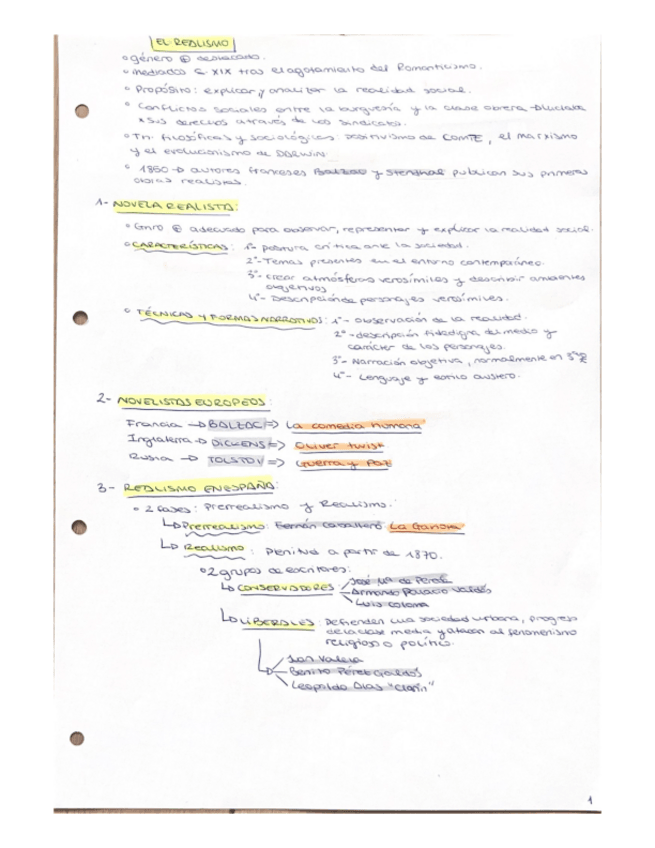 EL REALISMO
º género ⊕ destacado.
º mediados S. XIX tras el agotamiento del Romanticismo.
º Propósito: explicar y analizar la realidad social.
º Conflictos sociales entre la burguesía y la clase obrera
sus derechos a través de los sindicatos.
º Tn. filosóficas y sociológicas: positivismo de COMTE, el marxismo
y el evolucionismo de DARWIN
º 1850 → autores franceses Balzac y Stendhal publican sus primeras
obras realistas.
1- NOVELA REALISTA:
º Gnro ⊕ adecuado para observar, representar y explicar la realidad social.
º CARACTERÍSTICAS: 1º- postura crítica ante la sociedad.
2º- Temas presentes en el entorno contemporáneo.
3º- Crear atmósferas verosímiles y describir ambientes
objetivos
4º- Descripción de personajes verosímiles.
º TÉCNICAS Y FORMAS NARRATIVAS: 1º- Observación de la realidad.
2º- descripción fidedigna del medio y
carácter de los personajes.
3º- Narración objetiva, normalmente en 3ª
4º- Lenguaje y estilo austero.
2- NOVELISTAS EUROPEOS:
Francia → BALZAC => La comedia humana
Inglaterra → DICKENS => Oliver twist
Rusia → TOLSTOI => Guerra y Paz
3- REALISMO EN ESPAÑA:
º 2 fases: Prerrealismo y Realismo.
↳ Prerrealismo: Fernán Caballero La Gaviota
↳ Realismo: Plenitud a partir de 1870.
º 2 grupos de escritores:
↳ CONSERVADORES José Mª de Pereda
Armando Palacio Valdés
Luis Coloma
↳ LIBERALES: Defienden una sociedad urbana, progreso
de la clase media y atacan al fenomenismo
religioso o político.
Juan Valera
Benito Pérez Galdós
Leopoldo Alas "Clarín"
1